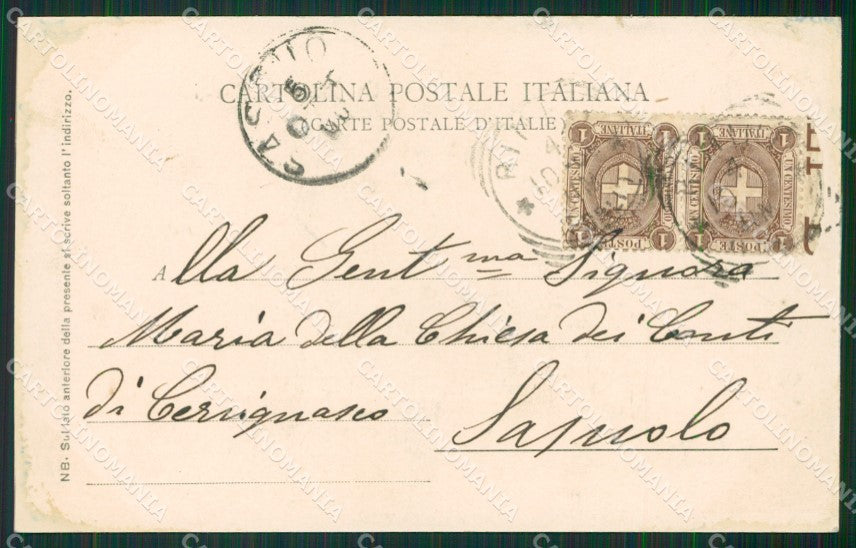 CARTOLINA POSTALE ITALIANA
(CARTE POSTALE D'ITALIE)
NB. Sul lato anteriore della presente si scrive soltanto l'indirizzo.
Alla Gent.ma Signora
Maria della Chiesa dei Conti
di Cervignasco
Sassuolo
1 POSTE ITALIANE 1
UN CENTESIMO
1 POSTE ITALIANE 1
UN CENTESIMO
CARTOLINOMANIA